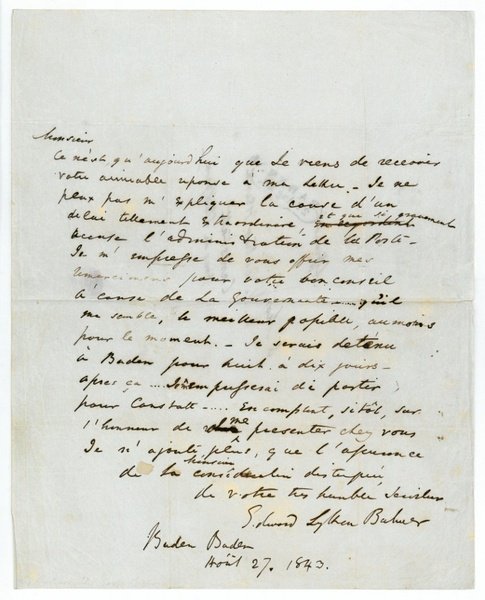 Monsieur
Ce n'est qu'aujourd'hui que Je viens de recevoir
votre aimable reponse à ma lettre – Je ne
peux pas m'expliquer la cause d'un
delai tellement extraordinaire et que si gravement
accuse l'administration de la Poste –
Je m'empresse de vous offrir mes
remerciemens pour votre bon conseil
à cause de la gouvernante – qu'il
me semble, le meilleur possible, au moins
pour le moment. – Je serais detenu
à Baden pour huit à dix jours –
apres ça ... Je m'empresserai de partir
pour Constatt – .... En comptant, sitôt, sur
l'honneur de me presenter chez vous
Je n'ajoute plûs, que l'assurance
Monsieur
de la consideration distinguée,
de votre tres humble Serviteur
Edward Lytton Bulwer
Baden Baden
Août 27. 1843.